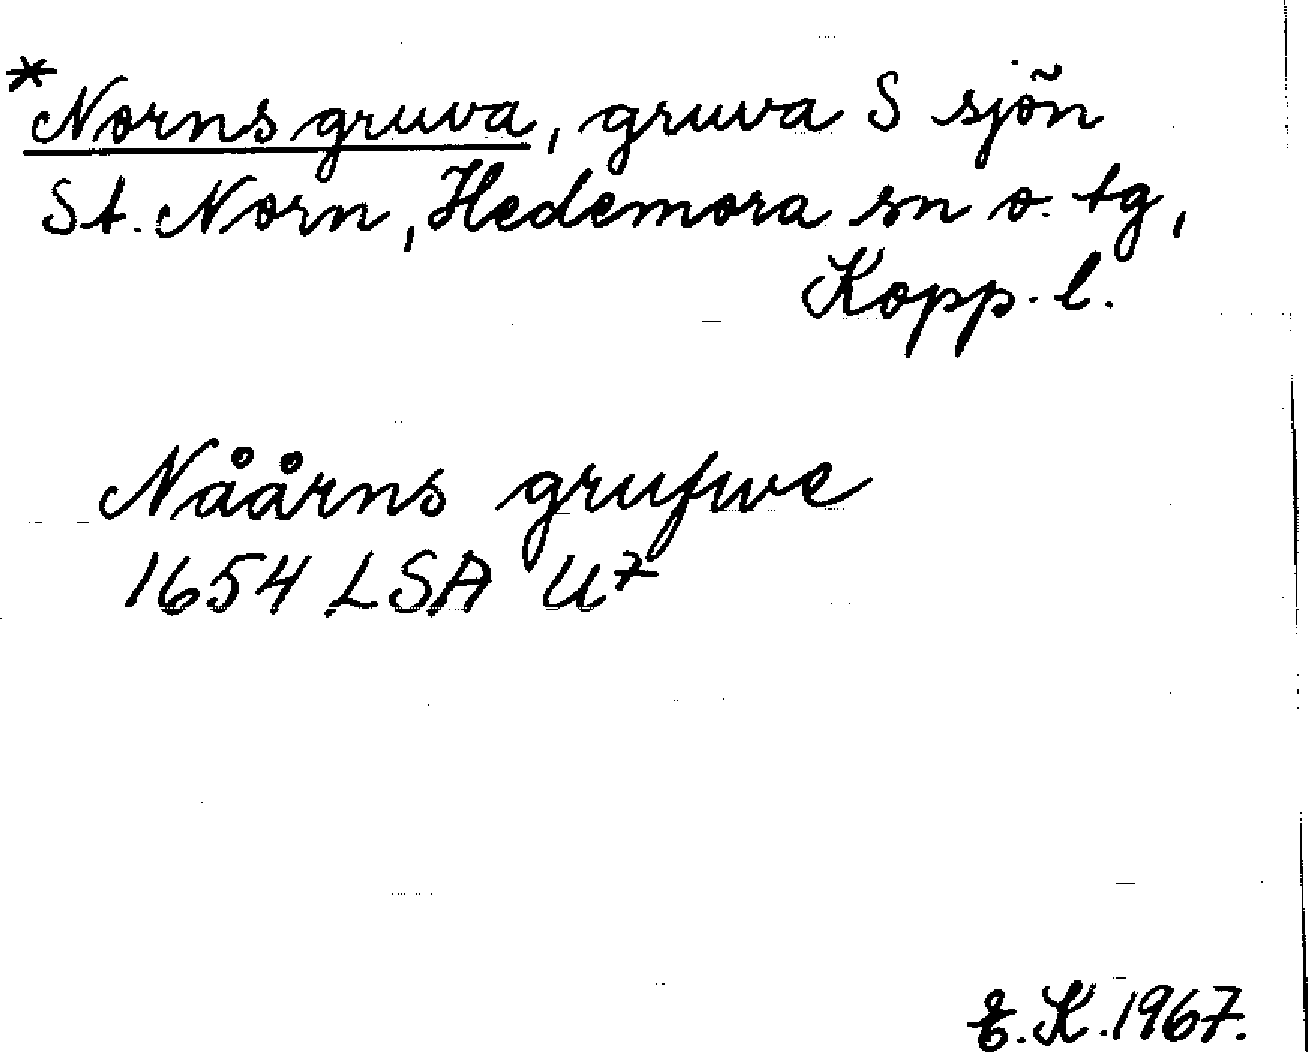 *Norns gruva, gruva S sjön
St. Norn, Hedemora sn o. tg,
Kopp. l.
Nåårns grufwe
1654 LSA U7
K. 1967.